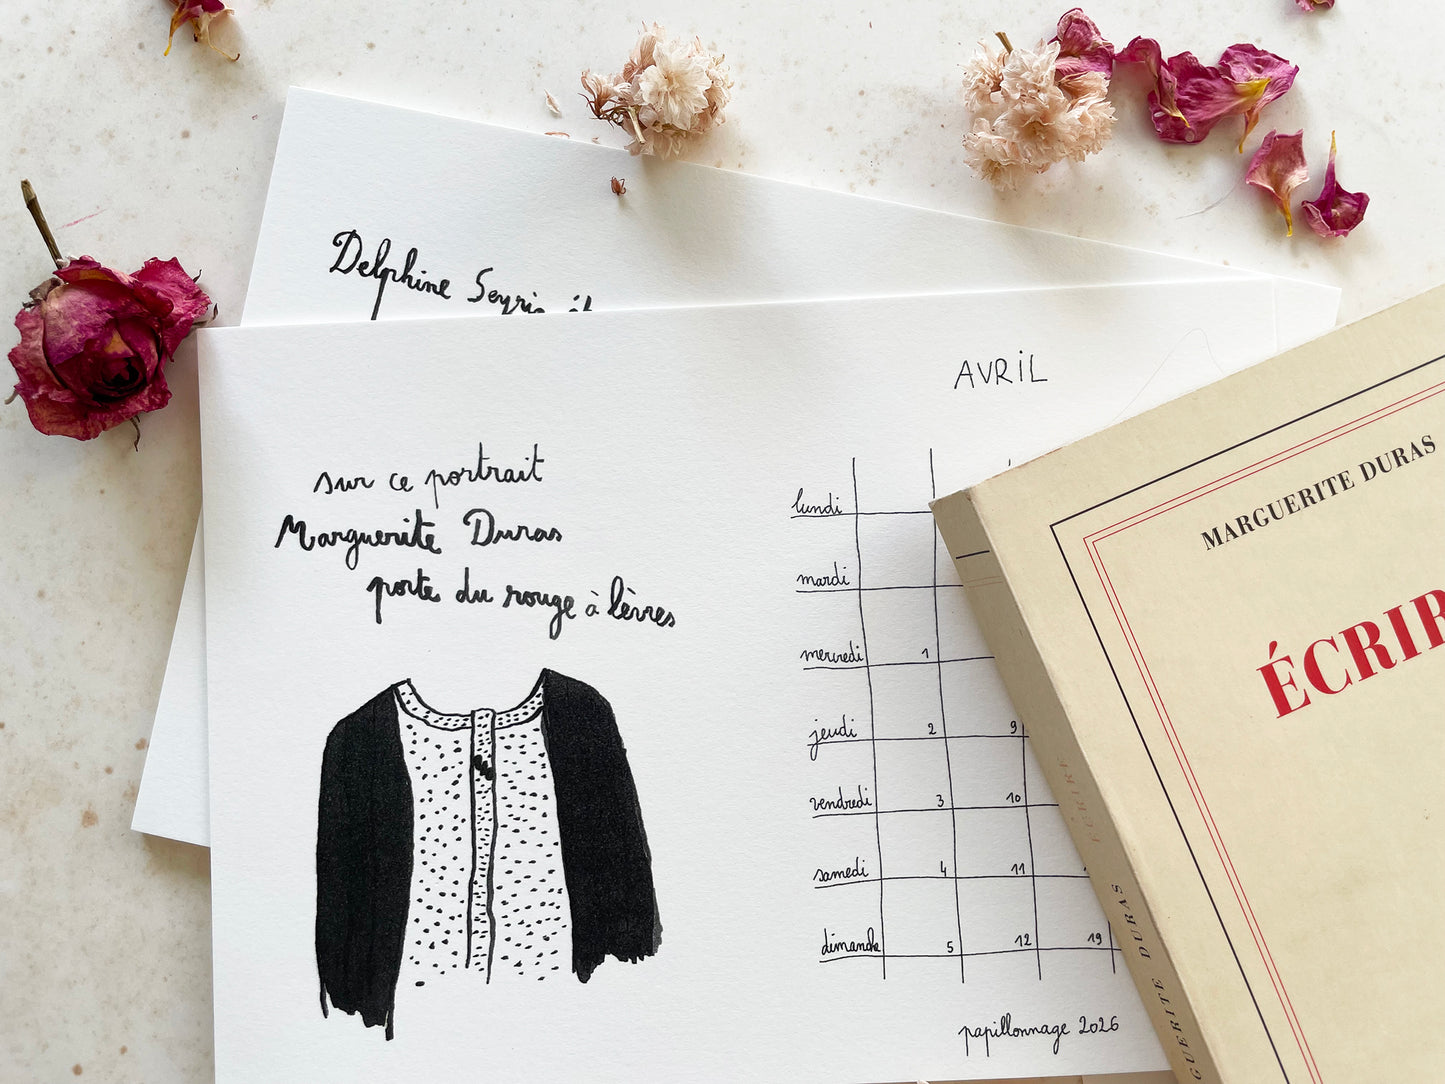 Delphine Seyrig et
AVRIL
sur ce portrait
Marguerite Duras
porte du rouge à lèvres
lundi
mardi
mercredi 1
jeudi 2 9
vendredi 3 10
samedi 4 11
dimanche 5 12 19
papillonnage 2026
MARGUERITE DURAS
ÉCRIR
GUERITE DURAS ÉCRIRE